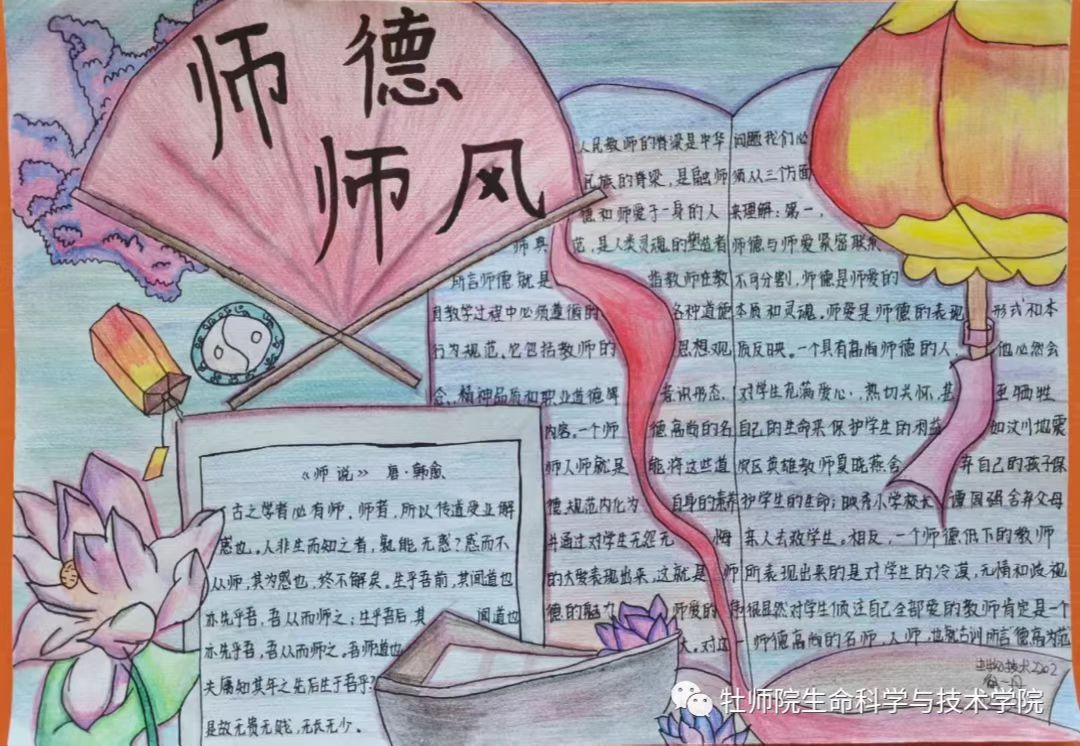 师德
师风
人民教师的脊梁是中华
民族的脊梁，是融师
德和师爱于一身的人
师典范，是人类灵魂的塑造者
所言师德就是指教师在教
育教学过程中必须遵循的各种道德
行为规范。它包括教师的思想观
念、精神品质和职业道德等意识形态
内容。一个师德高尚的名
师人师就是能将这些道
德规范内化为自身的素养
并通过对学生无怨无悔
的大爱表现出来，这就是师
德的魅力师爱的伟
大。对这一
问题我们必
须从三个方面
来理解：第一，
师德与师爱紧密联系
不可分割，师德是师爱的
本质和灵魂。师爱是师德的表现形式和本
质反映。一个具有高尚师德的人，他必然会
对学生充满爱心，热切关怀，甚至牺牲
自己的生命来保护学生的利益如汶川地震
灾区英雄教师夏晓燕舍弃自己的孩子保
护学生的生命；映秀小学校长谭国强舍弃父母
亲人去救学生。相反，一个师德低下的教师
所表现出来的是对学生的冷漠，无情和歧视
很显然对学生倾注自己全部爱的教师肯定是一个
师德高尚的名师，人师，也就古训所言“德高为范
《师说》 唐·韩愈
古之学者必有师。师者，所以传道受业解
惑也。人非生而知之者，孰能无惑？惑而不
从师，其为惑也，终不解矣。生乎吾前，其闻道也
亦先乎吾，吾从而师之；生乎吾后，其闻道也
亦先乎吾，吾从而师之。吾师道也
夫庸知其年之先后生于吾乎？
是故无贵无贱，无长无少。
生物技术2002
牡师院生命科学与技术学院